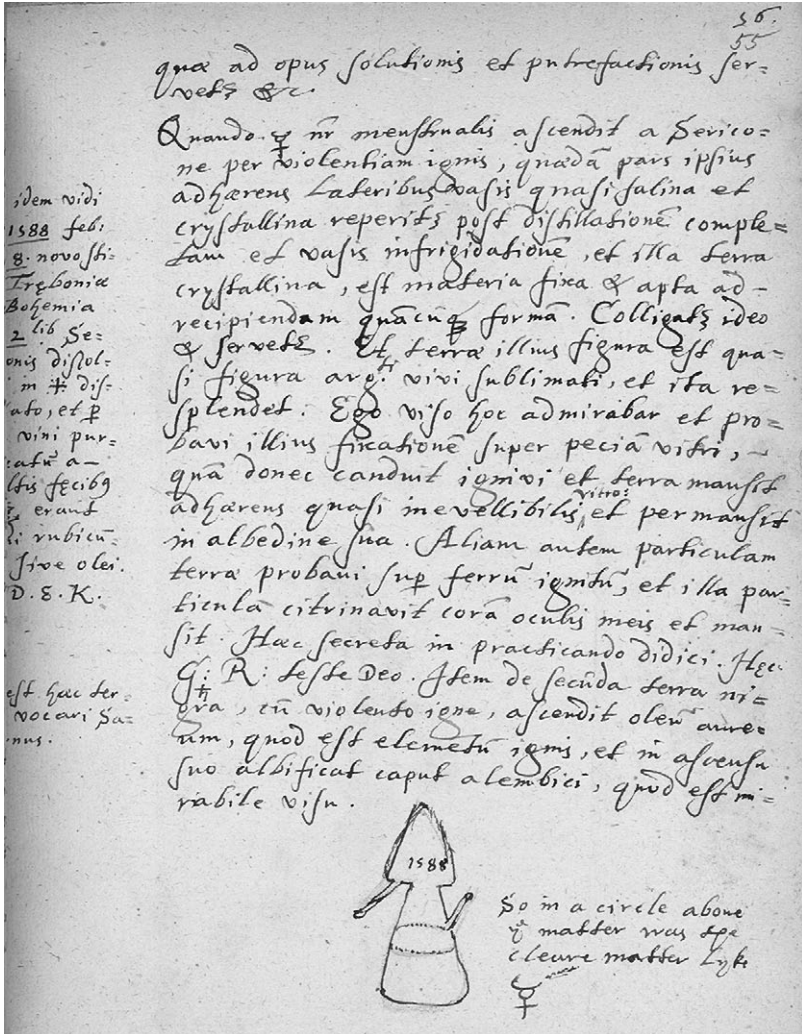 56.
55
quæ ad opus solutionis et putrefactionis ser=
vetʒ &c.
Quando ☿ nr̄ menstrualis ascendit a Serico=
ne per violentiam ignis, quædā pars ipsius
adhærens Lateribus vasis quasi salina et
crystallina reperitʒ post distillationē comple=
tam et vasis infrigidationē, et illa terra
crystallina, est materia fixa & apta ad-
recipiendam quācūqʒ formā. Colligatʒ ideo
& servetʒ. Et terræ illius figura est qua=
si figura arg:ti vivi sublimati, et ita re=
splendet. Ego viso hoc admirabar et pro=
bavi illius fixationē super peciā vitri, ~
quā donec canduit ignivi et terra mansit
adhærens quasi inevellibilis vitro: et permansit
in albedine sua. Aliam autem particulam
terræ probavi sup ferrū ignitū, et illa par=
ticulā citrinavit corā oculis meis et man=
sit. Hæc secreta in practicando didici. Hęc
G: R: teste Deo. Item de secūda terra ni=
gra, cū violento igne, ascendit oleū aure=
um, quod est elemētū ignis, et in ascensu
suo albificat caput alembici, quod est mi=
rabile visu.
idem vidi
1588 feb:
8. novo sti=
Tręboniæ
Bohemia
2 lib Se=
onis dissol=
in ⁜ dis=
ato, et p
vini pur=
catū a-
ltis fęcibꝯ
erant
di rubicū=
sive olei.
D. E. K.
est hæc ter=
vocari Sa=
nus.
♄
1588
So in a circle aboue
ye matter was the
cleare matter Lyke
☿